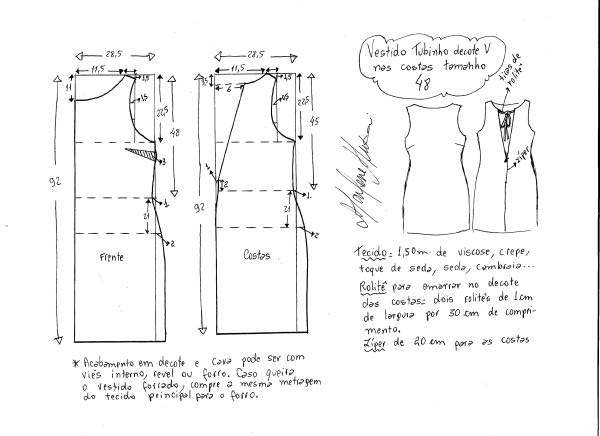 28,5
11,5
11
1,5
3,5
22,5
48
92
3
1
21
2
Frente
28,5
11,5
3,5
6
1,5
22,5
45
92
2
1
21
2
Costas
Vestido Tubinho decote V
nas costas tamanho
48
tiras de
rolitê
zíper
Tecido: 1,50m de viscose, crepe,
toque de seda, seda, cambraia...
Rolitê para amarrar no decote
das costas: dois rolitês de 1cm
de largura por 30 cm de compri-
mento.
Zíper de 20 cm para as costas
* Acabamento em decote e cava pode ser com
viés interno, revel ou forro. Caso queira
o vestido forrado, compre a mesma metragem
do tecido principal para o forro.